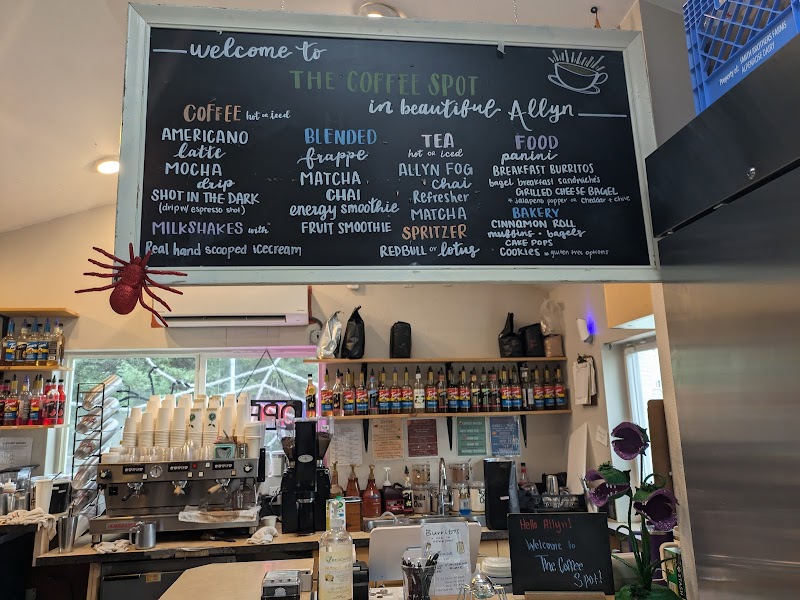 welcome to
THE COFFEE SPOT
in beautiful Allyn
COFFEE hot or iced
AMERICANO
latte
MOCHA
drip
SHOT IN THE DARK
(drip w/ espresso shot)
MILKSHAKES with
Real hand scooped icecream
BLENDED
frappe
MATCHA
CHAI
energy smoothie
FRUIT SMOOTHIE
TEA
hot or iced
ALLYN FOG
chai
Refresher
MATCHA
SPRITZER
REDBULL or lotus
FOOD
panini
BREAKFAST BURRITOS
bagel breakfast sandwiches
GRILLED CHEESE BAGEL
+ Jalapeno popper or cheddar + chive
BAKERY
CINNAMON ROLL
muffins • bagels
CAKE POPS
COOKIES w gluten free options
Property of: SMITH BROTHERS FARMS
ALPENROSE DAIRY
OPE
Burritos
Hello Allyn!
Welcome to
The Coffee
Spot!